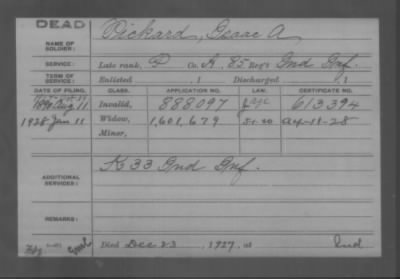 DEAD
NAME OF SOLDIER: Pickard, Isaac A
SERVICE: Late rank, P Co. K, 85 Reg't Ind Inf.
TERM OF SERVICE: Enlisted , 1 Discharged , 1
DATE OF FILING. CLASS. APPLICATION NO. LAW. CERTIFICATE NO.
1890 Aug 11 Invalid, 888,097 613394
1928 Jan 11 Widow, 1,601,679 A-4-18-28
Minor,
ADDITIONAL SERVICES: K 33 Ind Inf.
REMARKS:
Died Dec 23, 1927, at Ind